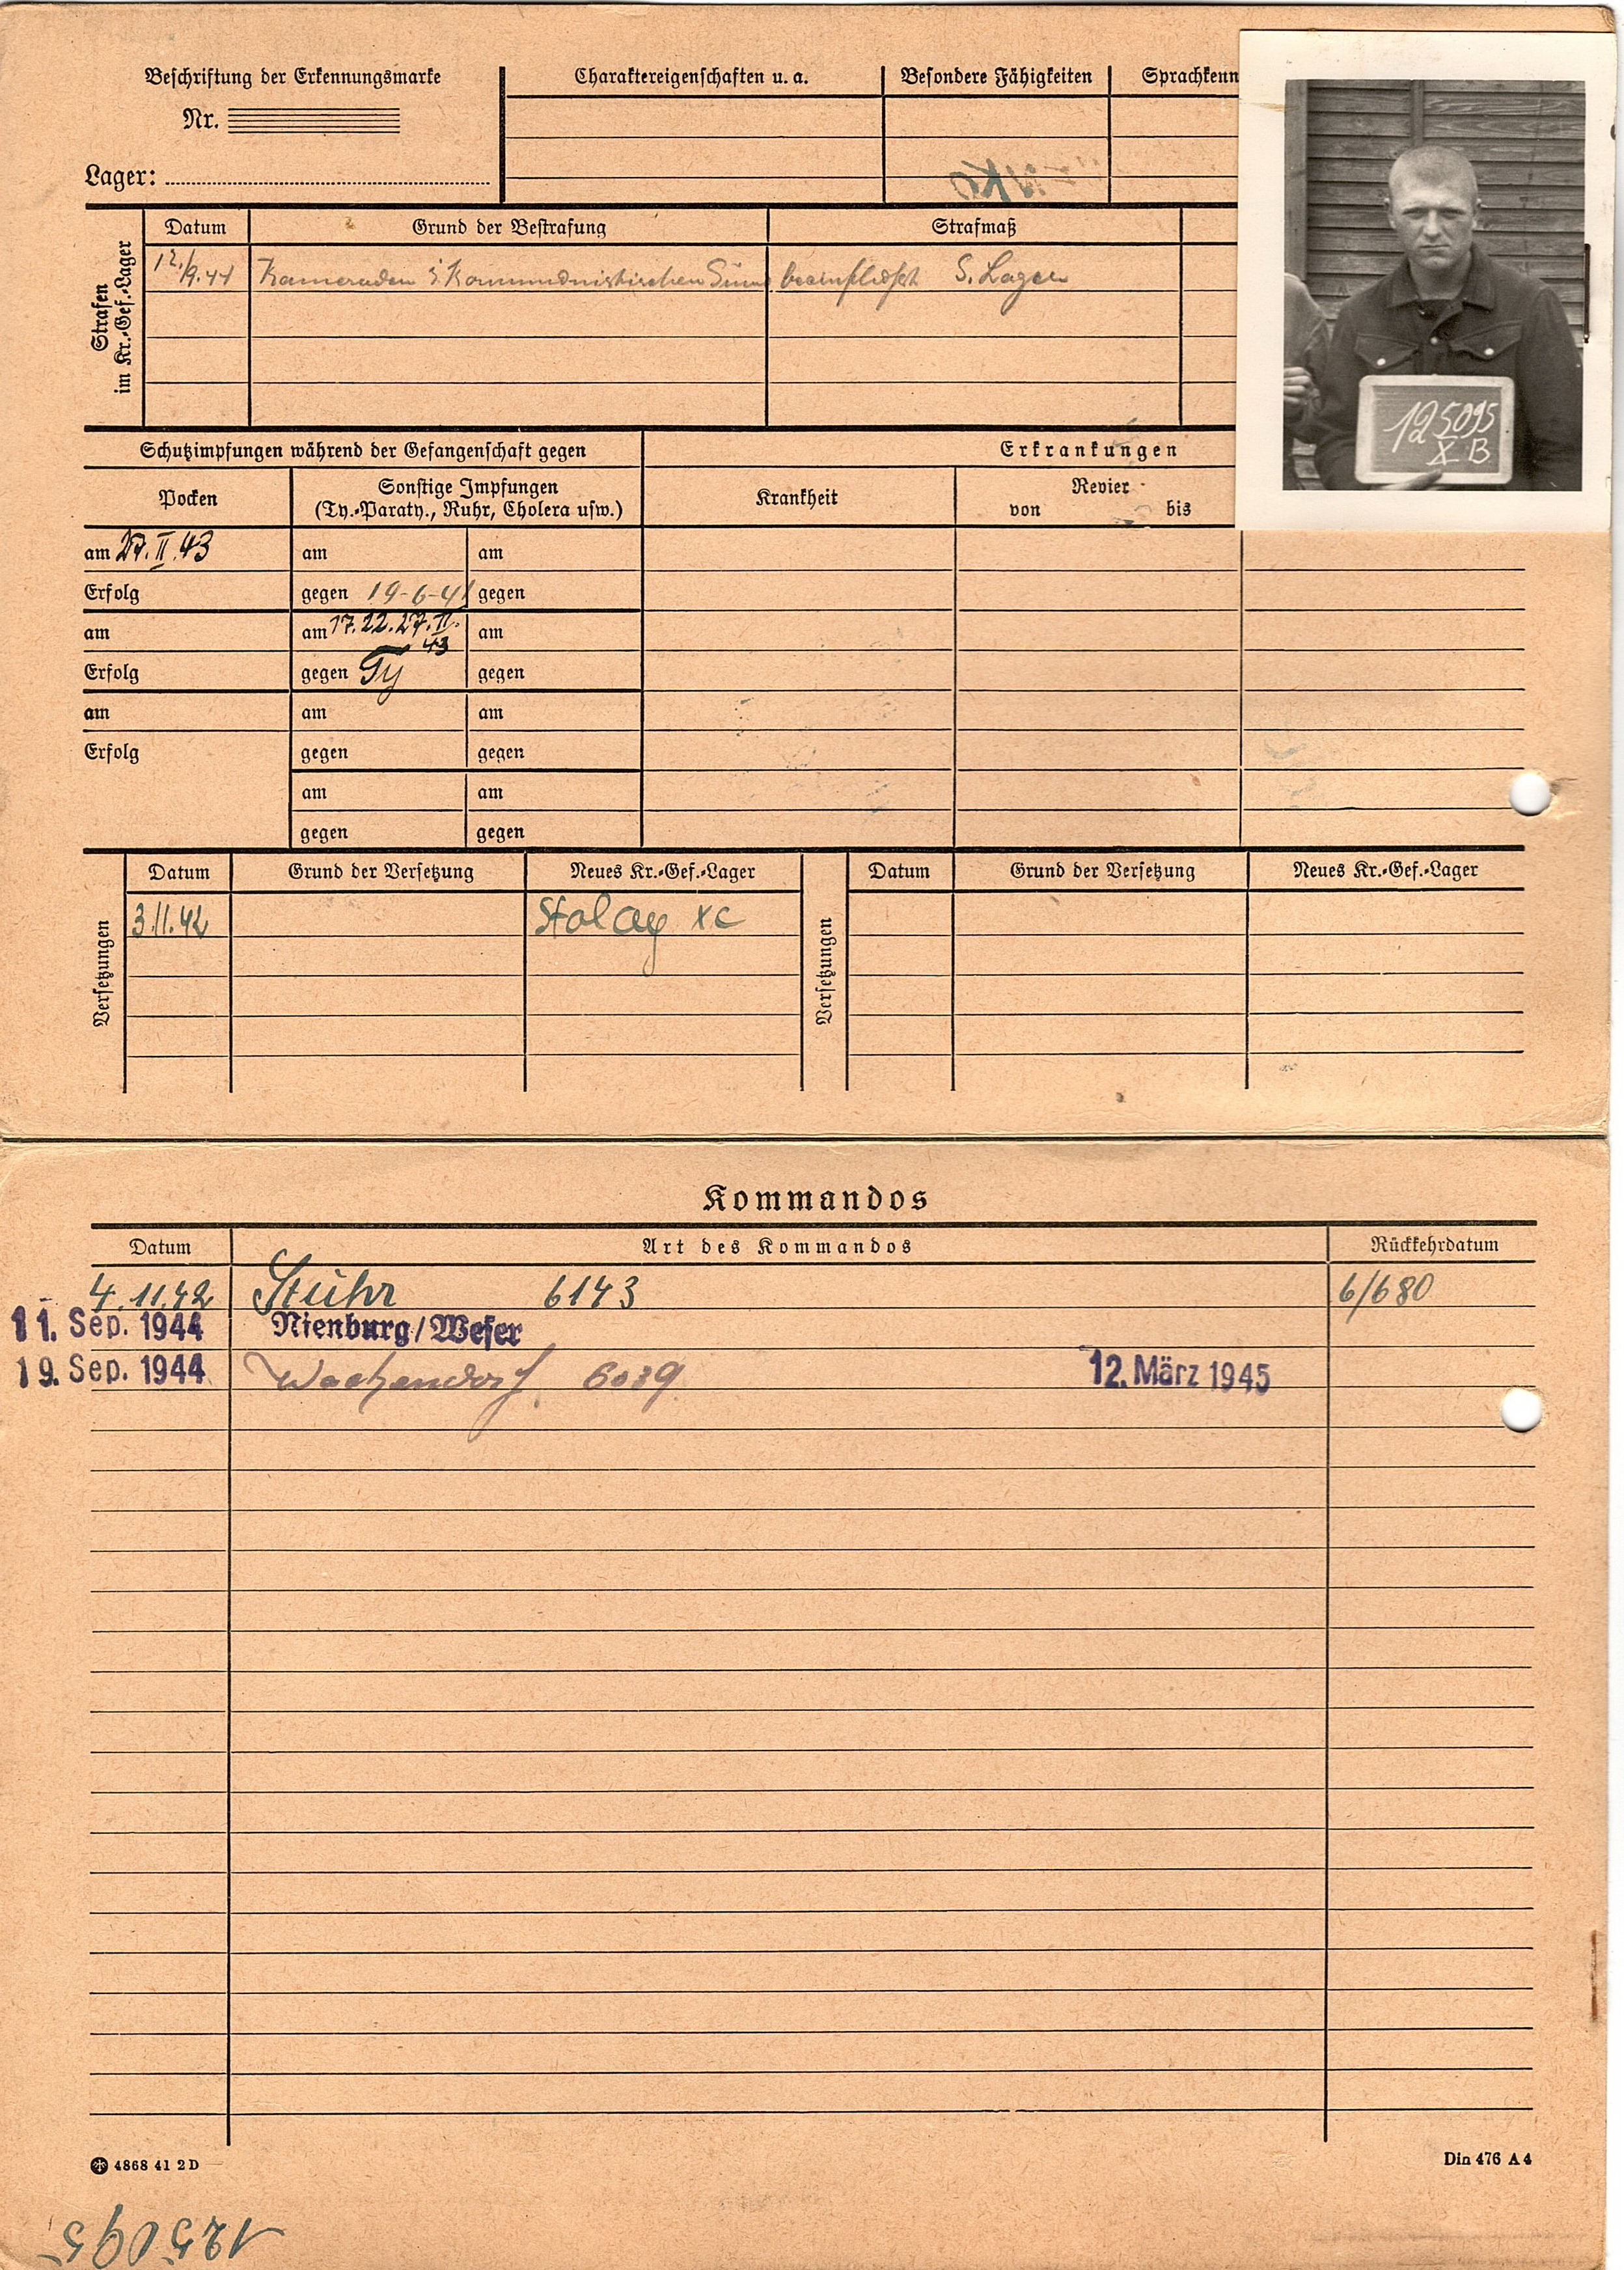 Beschriftung der Erkennungsmarke
Nr.
Lager:
Charaktereigenschaften u. a.
Besondere Fähigkeiten
Sprachkenn
Strafen im Kr.-Gef.-Lager
Datum Grund der Bestrafung Strafmaß
12./9.44 Kameraden i. Kommunistischen Sinne beeinflußt S. Lager
125095
X B
Schutzimpfungen während der Gefangenschaft gegen
Erkrankungen
Pocken
Sonstige Impfungen
(Ty.-Paraty., Ruhr, Cholera usw.)
Krankheit
Revier
von bis
am 27.II.43 am am
Erfolg gegen 19-6-41 gegen
am am 17.22.27.II.43 am
Erfolg gegen Ty gegen
am am am
Erfolg gegen gegen
am am
gegen gegen
Versetzungen
Datum Grund der Versetzung Neues Kr.-Gef.-Lager
3.11.42 Stalag XC
Versetzungen
Datum Grund der Versetzung Neues Kr.-Gef.-Lager
Kommandos
Datum Art des Kommandos Rückkehrdatum
4.11.42 Stuhr 6143 6/680
11. Sep. 1944 Nienburg/Weser
19. Sep. 1944 Wachendorf 6039 12. März 1945
4868 41 2 D
Din 476 A 4
125095